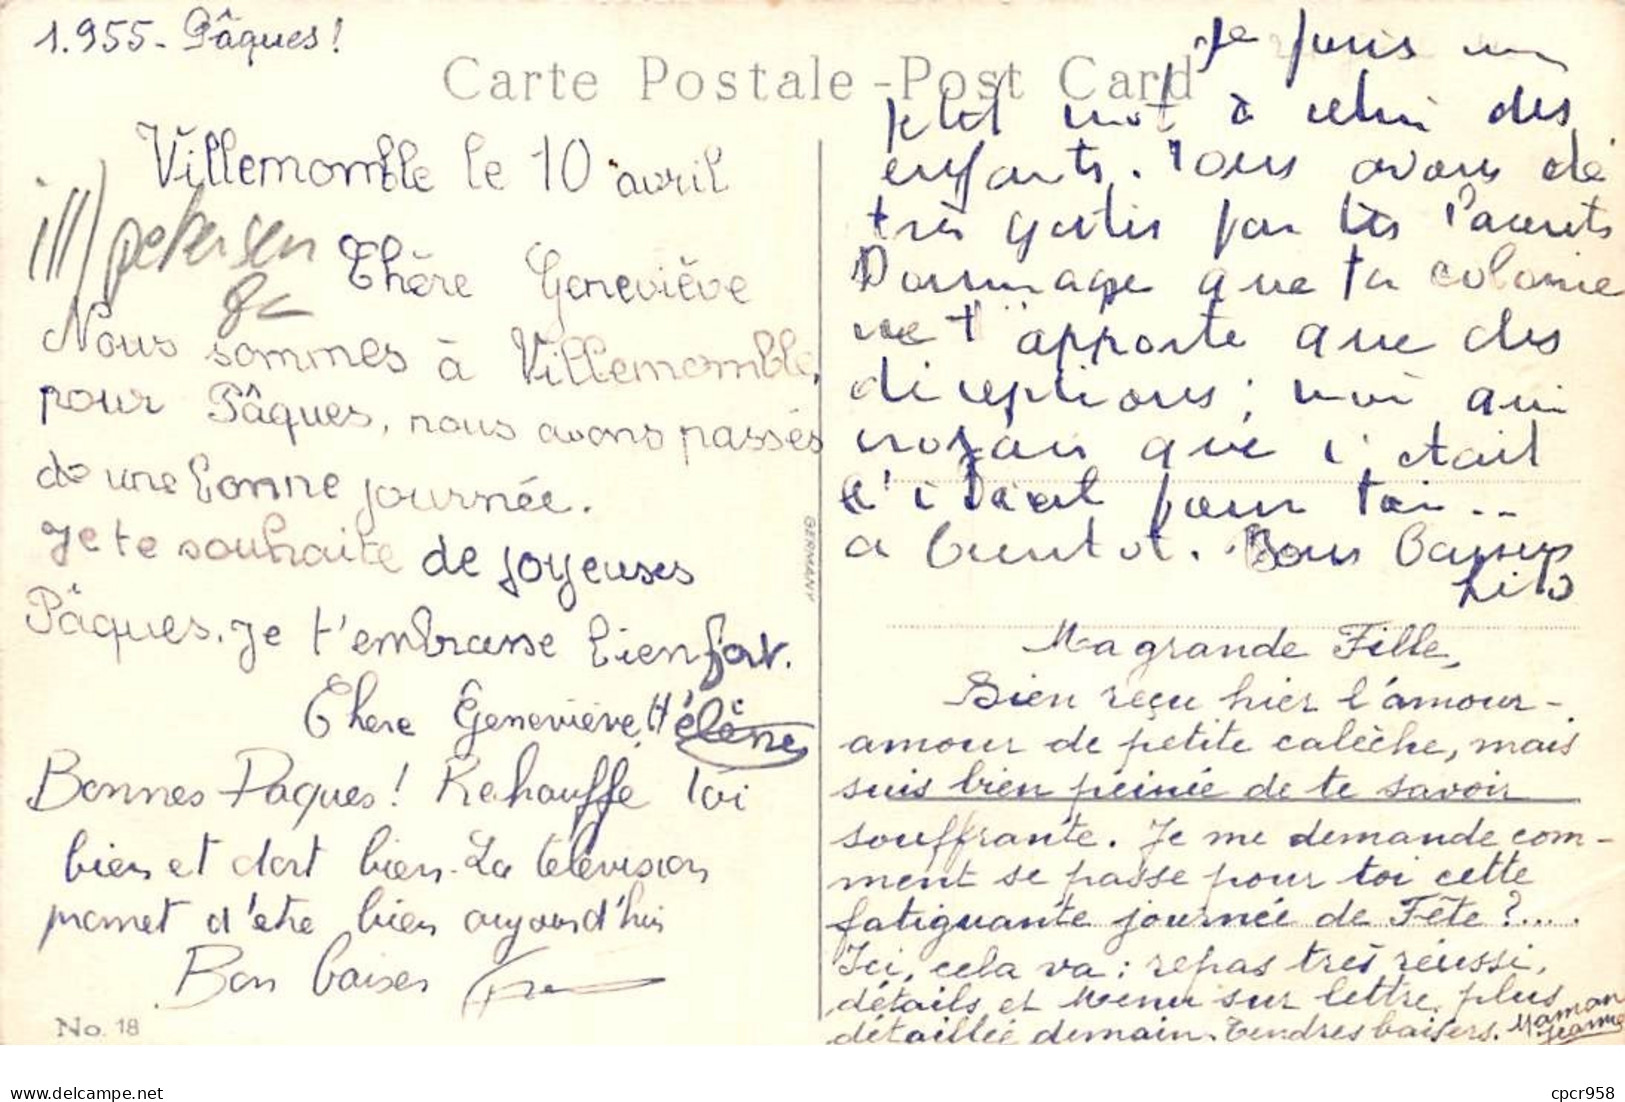 1.955 - Pâques !
Carte Postale - Post Card
Villemomble le 10 avril
ill petersen
Chère Geneviève
Nous sommes à Villemomble,
pour Pâques, nous avons passés
de une bonne journée.
Je te souhaite de joyeuses
Pâques. Je t'embrasse bien fort.
Chere Geneviève, Hélène
Bonnes Paques ! Rehauffe toi
bien et dort bien. La télévision
promet d'etre bien aujourd'hui
Bon baiser
No. 18
GERMANY
Je joins un
petit mot à celui des
enfants. Nous avons été
très gatés par tes Parents
Dommage que ta colonie
ne t'apporte que des
déceptions ; moi qui
croyais que c'était
l'idéal pour toi ..
a bientot. Bons Baisers
Ma grande Fille,
Bien reçu hier l'amour-
amour de petite calèche, mais
suis bien peinée de te savoir
souffrante. Je me demande com-
ment se passe pour toi cette
fatiguante journée de Fête ?....
Ici, cela va : repas très réussi,
détails et Menu sur lettre plus
détaillée demain. Tendres baisers. Maman
Jeanne
cpcr958
www.delcampe.net